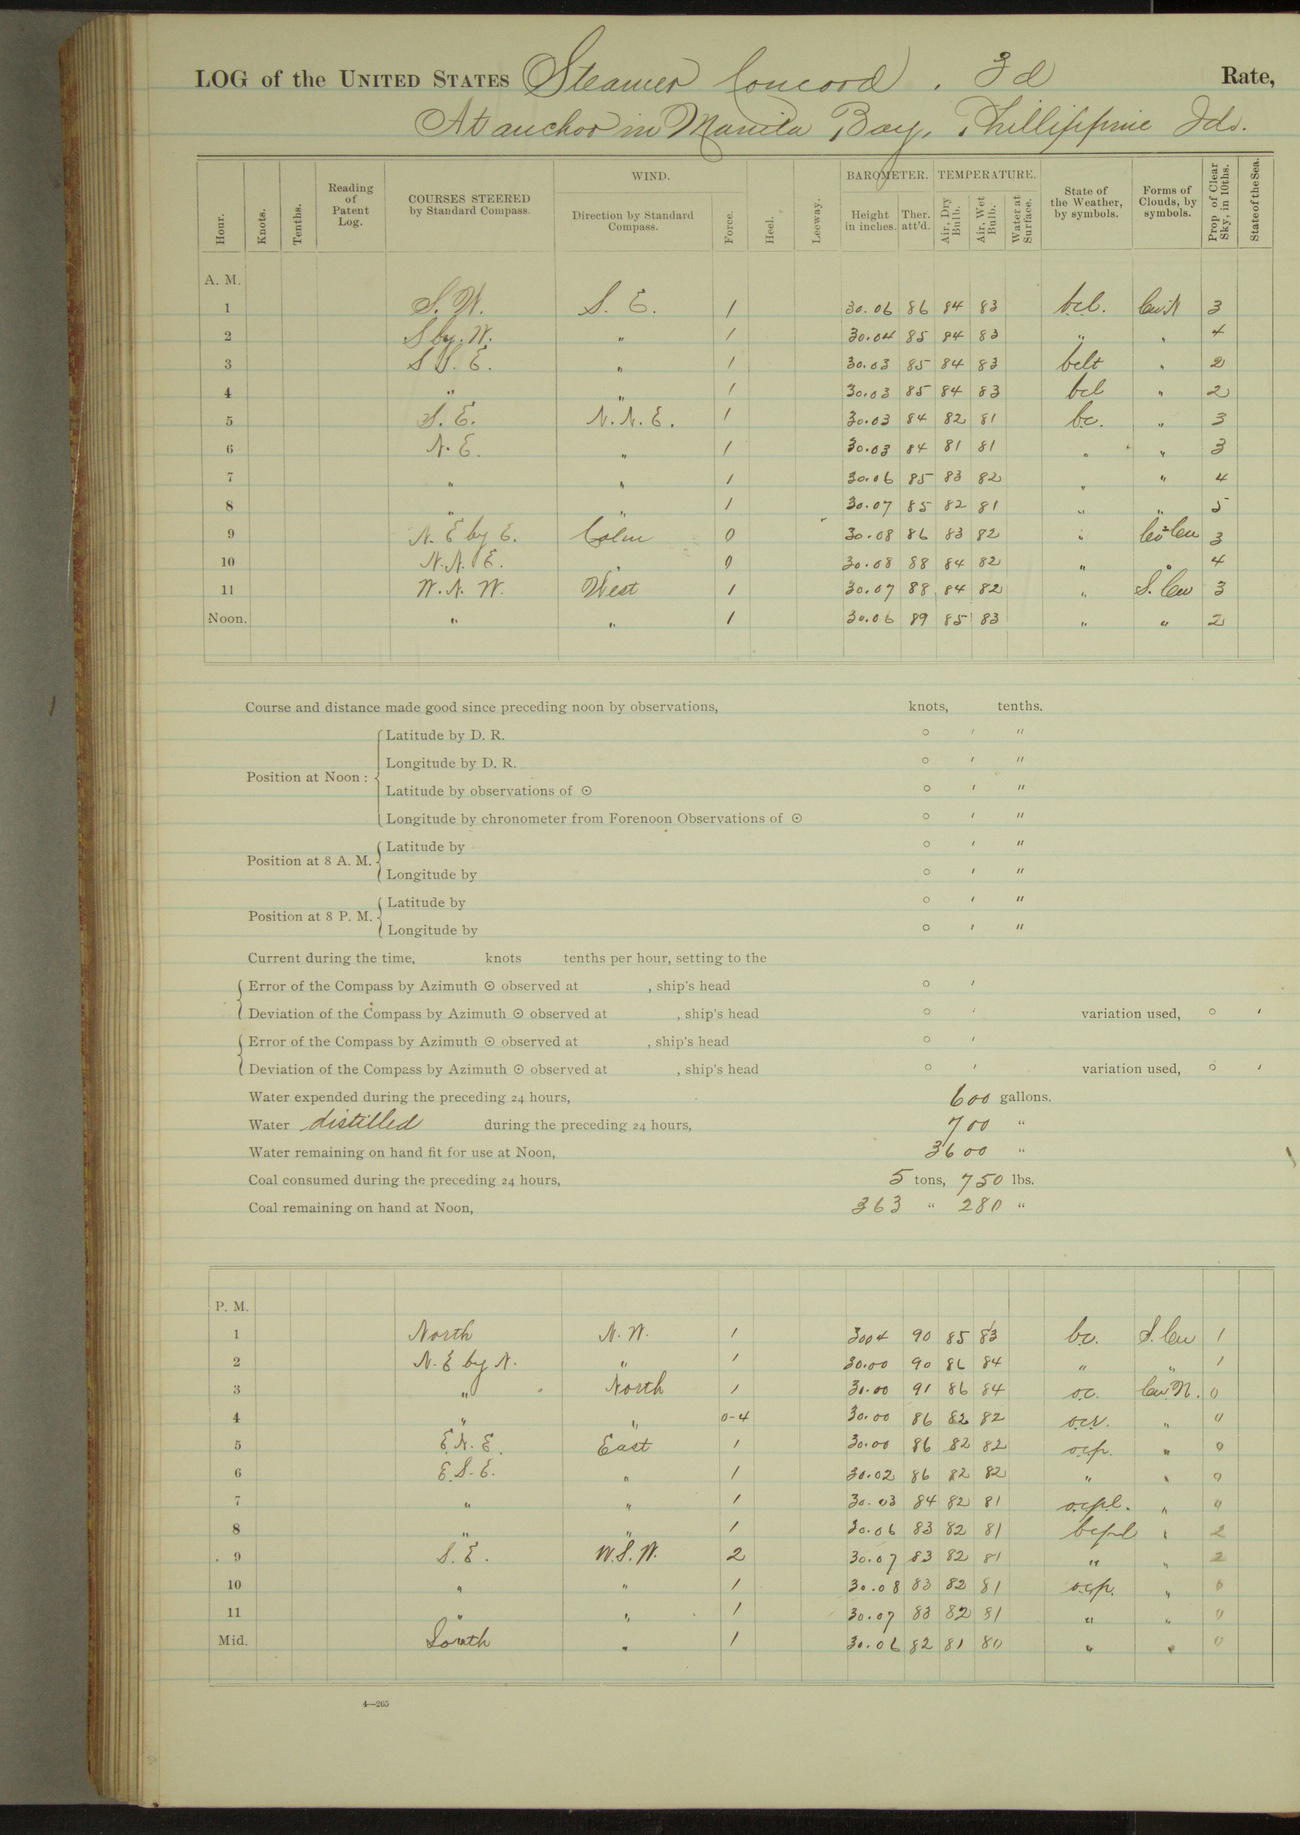 LOG of the UNITED STATES Steamer Concord, 3d Rate,
At anchor in Manila Bay, Phillippine Ids.
Hour. Knots. Tenths. Reading of Patent Log. COURSES STEERED by Standard Compass. WIND. Direction by Standard Compass. Force. Heel. Leeway. BAROMETER. Height in inches. Ther. att'd. TEMPERATURE. Air, Dry Bulb. Air, Wet Bulb. Water at Surface. State of the Weather, by symbols. Forms of Clouds, by symbols. Prop. of Clear Sky, in 10ths. State of the Sea.
A. M.
1 S. W. S. E. 1 30.06 86 84 83 b.c.l. Cu.N 3
2 S by. W. " 1 30.04 85 84 83 " " 4
3 S S. E. " 1 30.03 85 84 83 bclt " 2
4 " " 1 30.03 85 84 83 bcl " 2
5 S. E. N. N. E. 1 30.03 84 82 81 bc. " 3
6 N. E. " 1 30.03 84 81 81 " " 3
7 " " 1 30.06 85 83 82 " " 4
8 " " 1 30.07 85 82 81 " " 5
9 N. E by E. Calm 0 30.08 86 83 82 " 3
10 N. N. E. " 0 30.08 88 84 82 " " 4
11 W. N. W. West 1 30.07 88 84 82 " S. Cu 3
Noon. " " 1 30.06 89 85 83 " " 2
Course and distance made good since preceding noon by observations, knots, tenths.
Position at Noon: Latitude by D. R. ° ′ ″
Longitude by D. R. ° ′ ″
Latitude by observations of ☉ ° ′ ″
Longitude by chronometer from Forenoon Observations of ☉ ° ′ ″
Position at 8 A. M. Latitude by ° ′ ″
Longitude by ° ′ ″
Position at 8 P. M. Latitude by ° ′ ″
Longitude by ° ′ ″
Current during the time, knots tenths per hour, setting to the
Error of the Compass by Azimuth ☉ observed at , ship's head ° ′
Deviation of the Compass by Azimuth ☉ observed at , ship's head ° ′ variation used, ° ′
Error of the Compass by Azimuth ☉ observed at , ship's head ° ′
Deviation of the Compass by Azimuth ☉ observed at , ship's head ° ′ variation used, ° ′
Water expended during the preceding 24 hours, 600 gallons.
Water distilled during the preceding 24 hours, 700 "
Water remaining on hand fit for use at Noon, 3600 "
Coal consumed during the preceding 24 hours, 5 tons, 750 lbs.
Coal remaining on hand at Noon, 363 " 280 "
P. M.
1 North N. W. 1 3004 90 85 83 b.c. S. Cu 1
2 N. E by N. " 1 30.00 90 86 84 " " 1
3 " North 1 30.00 91 86 84 o.c. Cu.N. 0
4 " " 0-4 30.00 86 82 82 o.c.r. " 0
5 E. N. E. East 1 30.00 86 82 82 o.c.p. " 0
6 E. S. E. " 1 30.02 86 82 82 " " 0
7 " " 1 30.03 84 82 81 o.c.p.l. " 0
8 " " 1 30.06 83 82 81 bcpl " 2
9 S. E. W. S. W. 2 30.07 83 82 81 " " 2
10 " " 1 30.08 83 82 81 o.c.p. " 0
11 " " 1 30.07 83 82 81 " " 0
Mid. South " 1 30.06 82 81 80 " " 0
4—265